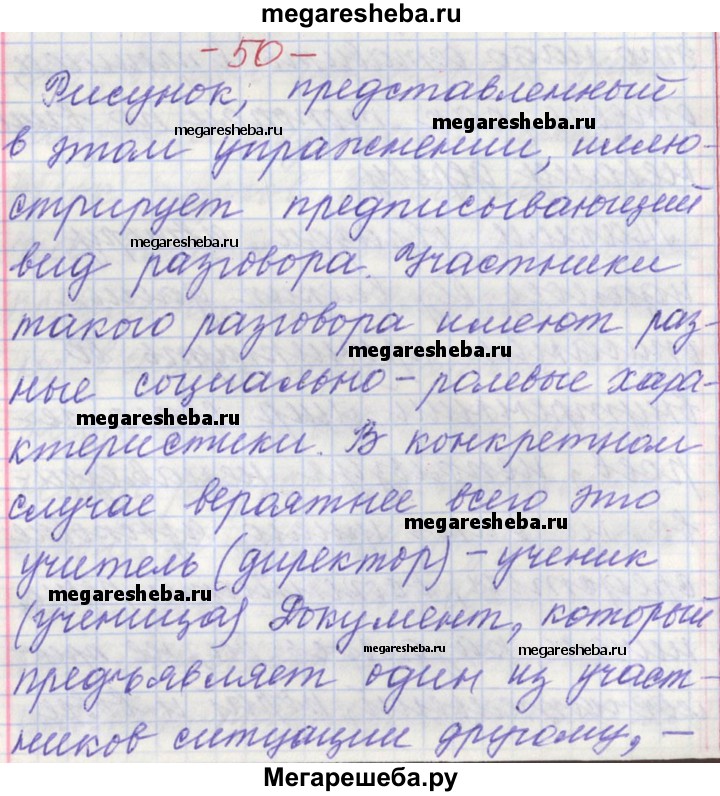 megaresheba.ru
- 50 -
Рисунок, представленный
megaresheba.ru
megaresheba.ru
в этом упражнении, иллю-
стрирует предписывающий
megaresheba.ru
вид разговора. Участники
такого разговора имеют раз-
megaresheba.ru
ные социально-ролевые хара-
megaresheba.ru
ктеристики. В конкретном
случае вероятнее всего это
megaresheba.ru
учитель (директор) - ученик
megaresheba.ru
(ученица) Документ, который
megaresheba.ru
megaresheba.ru
предъявляет один из участ-
ников ситуации другому, -
Мегарешеба.ру